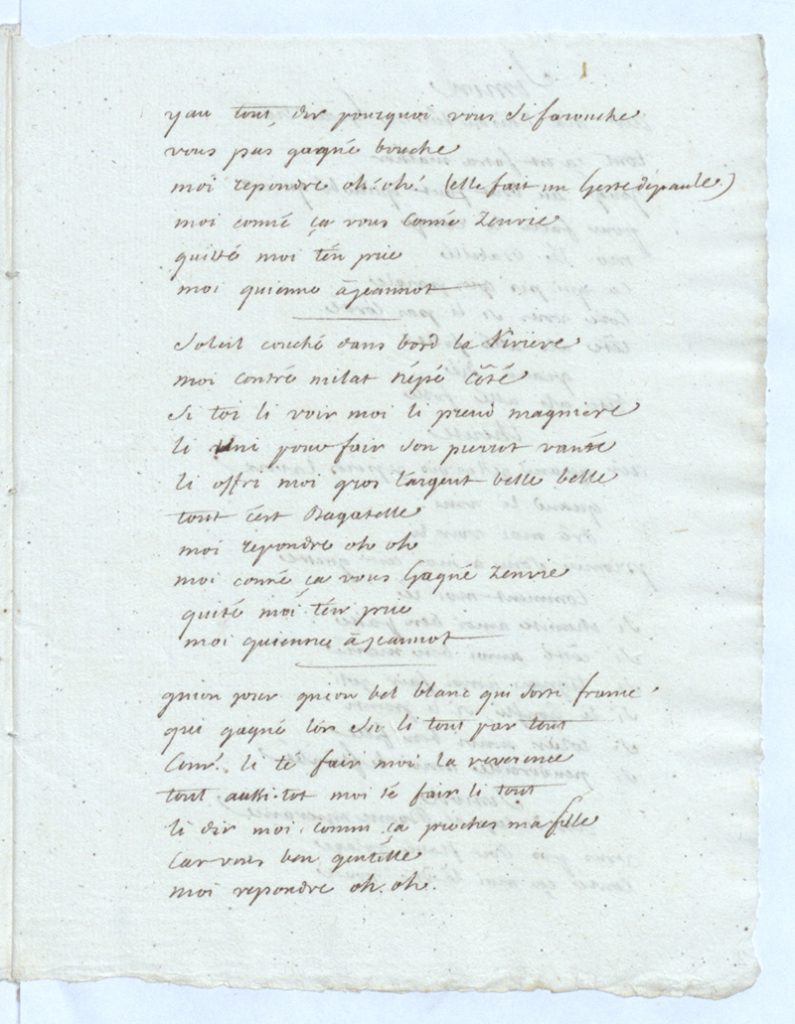 yau tout, dir pourquoi vous si farouche
vous pas gagné bouche
moi repondre oh! oh! (elle fait un geste dépaule.)
moi conné ça vous conné zenvie
quitté moi t'én prie
moi quienne à jeannot
Soleil couché dans bord la Riviere
moi contré milat népé côté
Si toi li voir moi li prend magniere
li uni pour fair son pierrot vanté
li offri moi gros l'argent belle belle
tout c'est Bagatelle
moi repondre oh oh
moi conné ça vous gagné zenvie
quité moi t'én prie
moi quienne à jeannot
gnion jour gnion bel blanc qui sorti france
qui gagné lor Su li tout par tout
Com.e li té fair moi la reverence
tout aussi-tot moi té fair li tout
li dir moi comm ça prochez ma fille
Car vous ben gentille
moi repondre oh. oh.